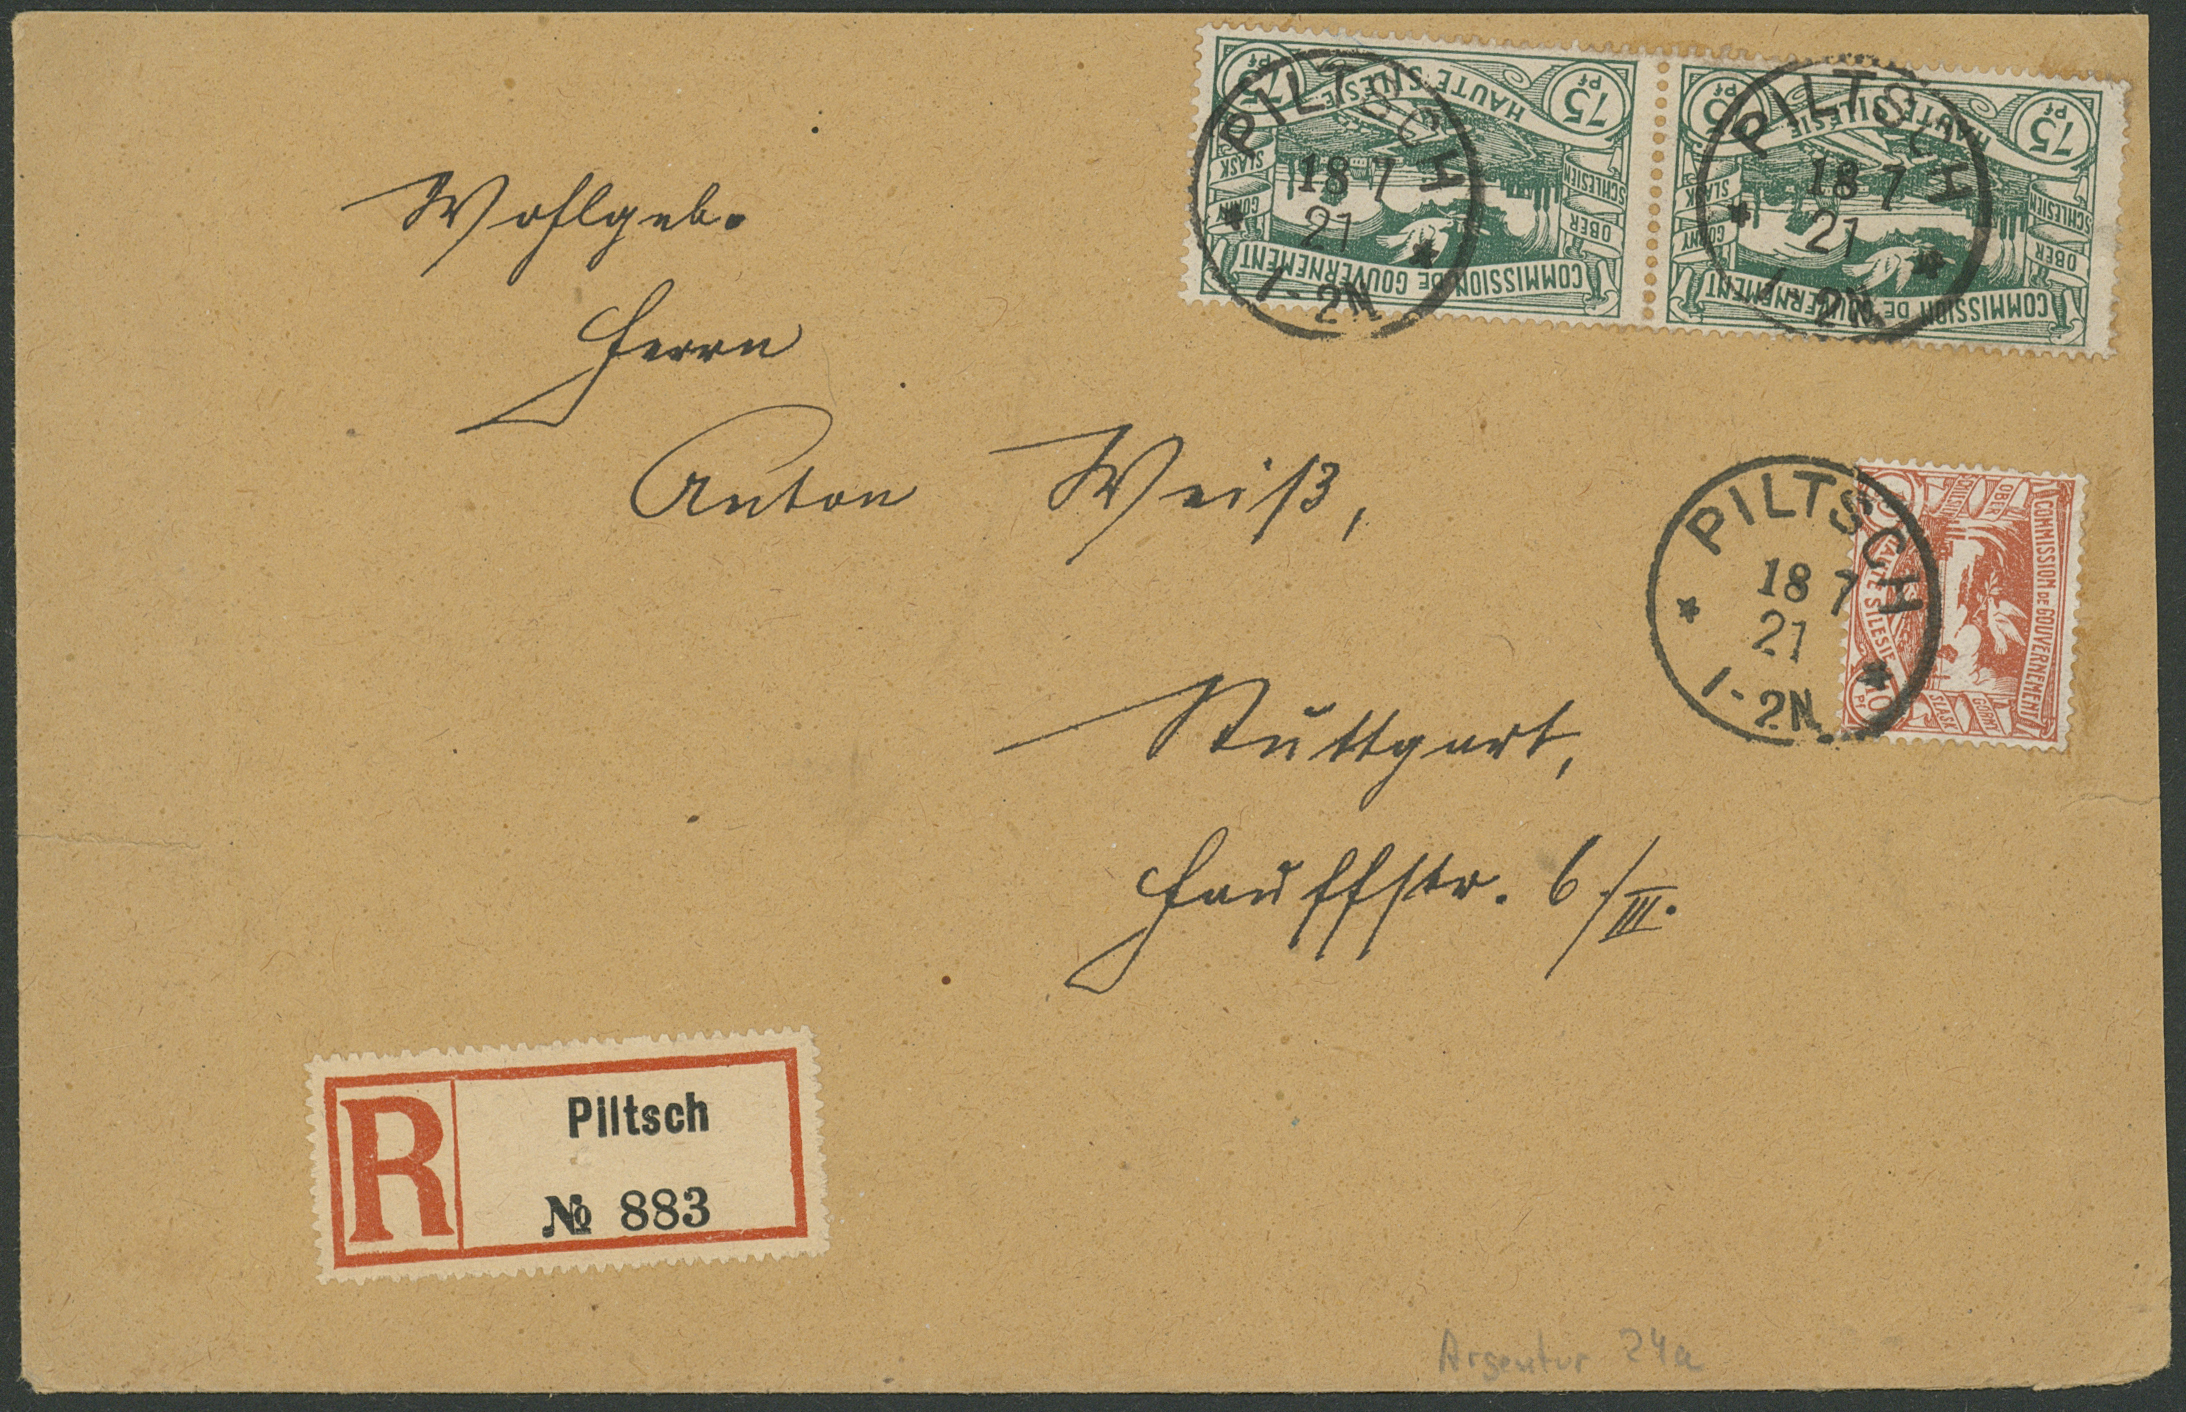 75 Pf HAUTE SILESIE 75 Pf
GORNY ŚLĄSK
OBER SCHLESIEN
COMMISSION DE GOUVERNEMENT
75 Pf HAUTE SILESIE 75 Pf
GORNY ŚLĄSK
OBER SCHLESIEN
COMMISSION DE GOUVERNEMENT
PILTSCH
18 7
21
1-2N
PILTSCH
18 7
21
1-2N
Wohlgeb.
Herrn
Anton Weiß,
PILTSCH
18 7
21
1-2N.
COMMISSION DE GOUVERNEMENT
OBER SCHLESIEN
GORNY ŚLĄSK
HAUTE SILESIE
10 Pf
Stuttgart,
Hauffstr. 6/III.
R
Piltsch
№ 883
24a